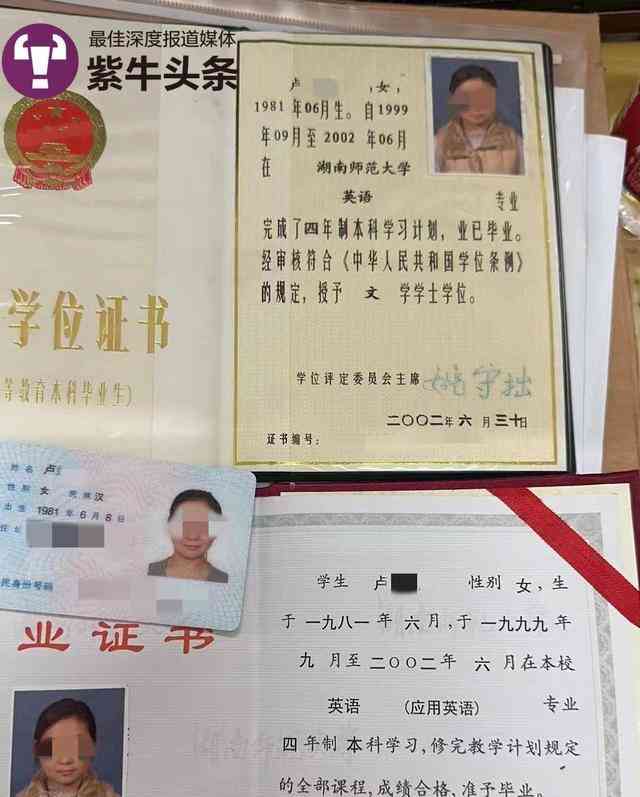 最佳深度报道媒体
紫牛头条
卢 ,女,
1981 年06月生。自1999
年09月至 2002 年06月
在 湖南师范大学
英语 专业
完成了四年制本科学习计划,业已毕业。
经审核符合《中华人民共和国学位条例》
的规定,授予 文 学学士学位。
学位评定委员会主席
二〇〇二年 六 月 三十日
证书编号:
学位证书
等教育本科毕业生)
姓名 卢
性别 女 民族 汉
出生 1981 年 6 月 8 日
住址
民身份号码
业证书
学生 卢 性别 女,生
于 一九八一 年 六 月,于 一九九九 年
九 月至 二〇〇二 年 六 月在本校
英语 (应用英语) 专业
四年制 本科学习,修完教学计划规定
的全部课程,成绩合格,准予毕业。